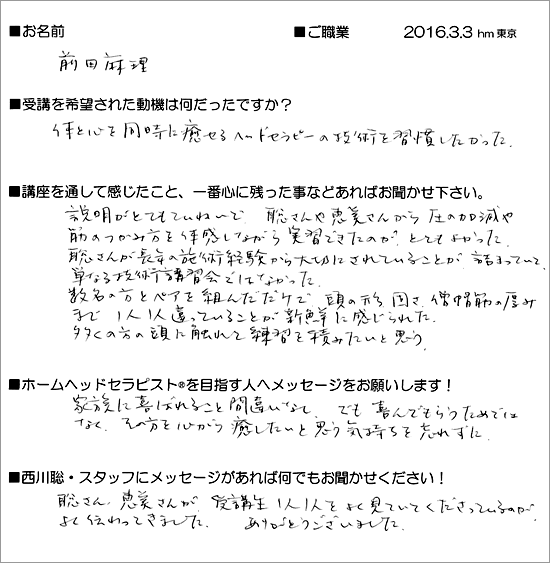 ■お名前 ■ご職業 2016.3.3 hm東京
前田麻理
■受講を希望された動機は何だったですか？
体と心を同時に癒せるヘッドセラピーの技術を習慣したかった.
■講座を通して感じたこと、一番心に残った事などあればお聞かせ下さい。
説明がとてもていねいで 聡さんや恵美さんから圧の加減や
筋のつかみ方を体感しながら実習できたのが、とてもよかった.
聡さんが長年の施術経験から大切にされていることが詰まっていて、
単なる技術講習会ではなかった.
数名の方とペアを組んだだけで、頭の形、固さ、僧帽筋の厚み
まで1人1人違っていることが新鮮に感じられた.
多くの方の頭に触れて練習を積みたいと思う.
■ホームヘッドセラピスト®を目指す人へメッセージをお願いします！
家族に喜ばれること間違いなし. でも喜んでもらうためでは
なく、その方を心から癒したいと思う気持ちを忘れずに.
■西川聡・スタッフにメッセージがあれば何でもお聞かせください！
聡さん、恵美さんが、受講生1人1人をよく見ていてくださっているのが、
よく伝わってきました. ありがとうございました.